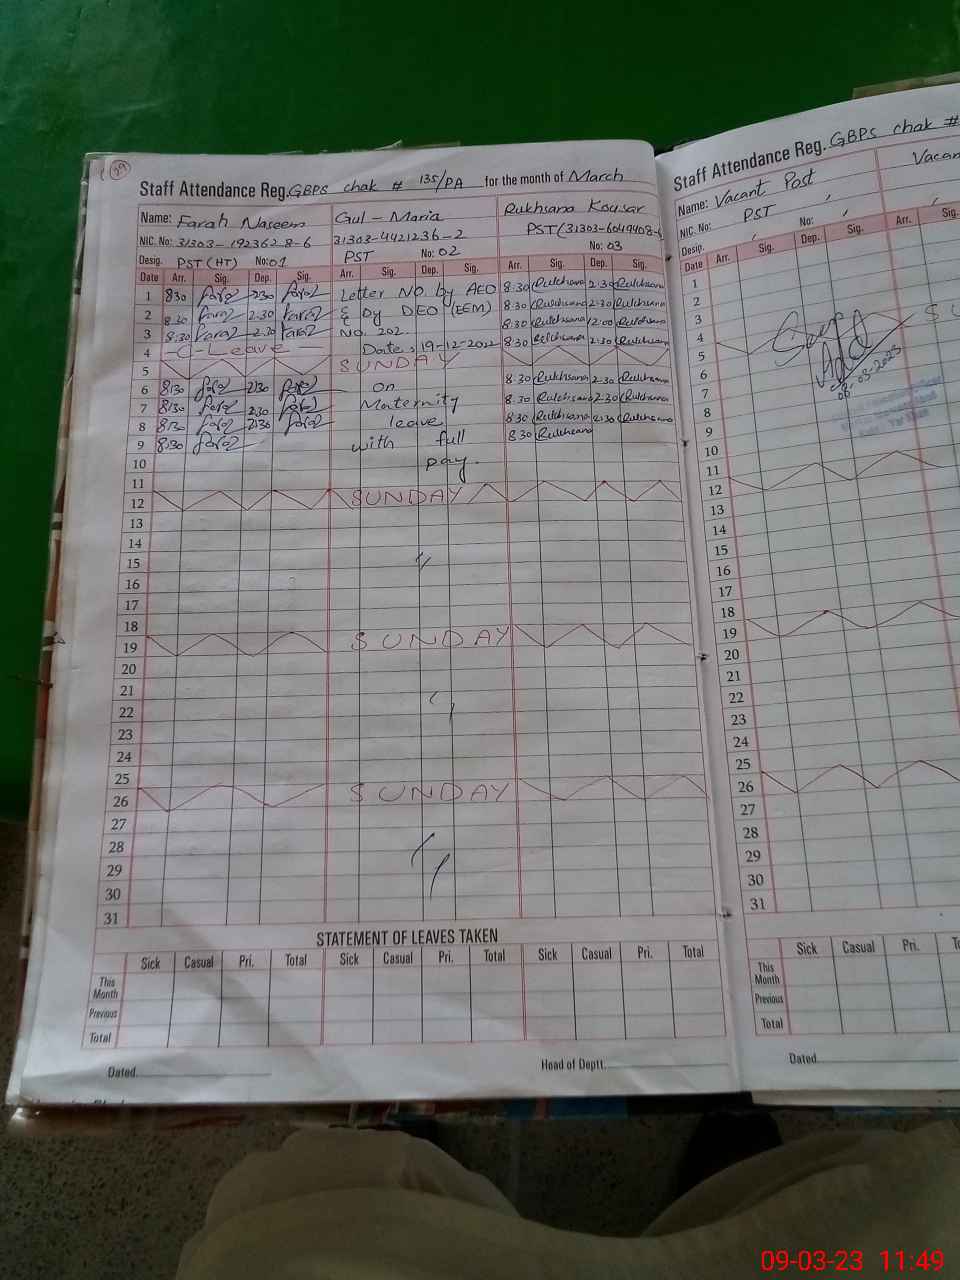 39
Staff Attendance Reg. GBPS chak # 135/PA for the month of March
Name: Farah Naseem Gul - Maria Rukhsana Kousar
NIC. No: 31303-1923628-6 31303-4421236-2 PST (31303-6049408-
Desig. PST (HT) No: 01 PST No: 02 No: 03
Date Arr. Sig. Dep. Sig. Arr. Sig. Dep. Sig. Arr. Sig. Dep. Sig.
1 8:30 2:30 Letter No. by AEO 8:30 Rukhsana 2:30 Rukhsana
2 8:30 2:30 & by DEO (EEM) 8:30 Rukhsana 2:30 Rukhsana
3 8:30 2:30 No. 202 8:30 Rukhsana 12:00 Rukhsana
4 -C-Leave Date: 19-12-2022 8:30 Rukhsana 2:30 Rukhsana
5 SUNDAY
6 8:30 2:30 on 8:30 Rukhsana 2:30 Rukhsana
7 8:30 2:30 Maternity 8:30 Rukhsana 2:30 Rukhsana
8 8:30 2:30 leave 8:30 Rukhsana 2:30 Rukhsana
9 8:30 with full 8:30 Rukhsana
10 pay.
11
12 SUNDAY
13
14
15
16
17
18
19 SUNDAY
20
21
22
23
24
25
26 SUNDAY
27
28
29
30
31
STATEMENT OF LEAVES TAKEN
Sick Casual Pri. Total Sick Casual Pri. Total Sick Casual Pri. Total
This Month
Previous
Total
Dated. Head of Deptt.
Staff Attendance Reg. GBPS chak #
Name: Vacant Post Vacan
NIC. No: PST
Desig. No:
Date Arr. Sig. Dep. Sig. Arr. Sig.
1
2
3
4 SU
5
6
7 08-03-2023
8
9
10
11
12
13
14
15
16
17
18
19
20
21
22
23
24
25
26
27
28
29
30
31
Sick Casual Pri. To
This Month
Previous
Total
Dated
09-03-23 11:49